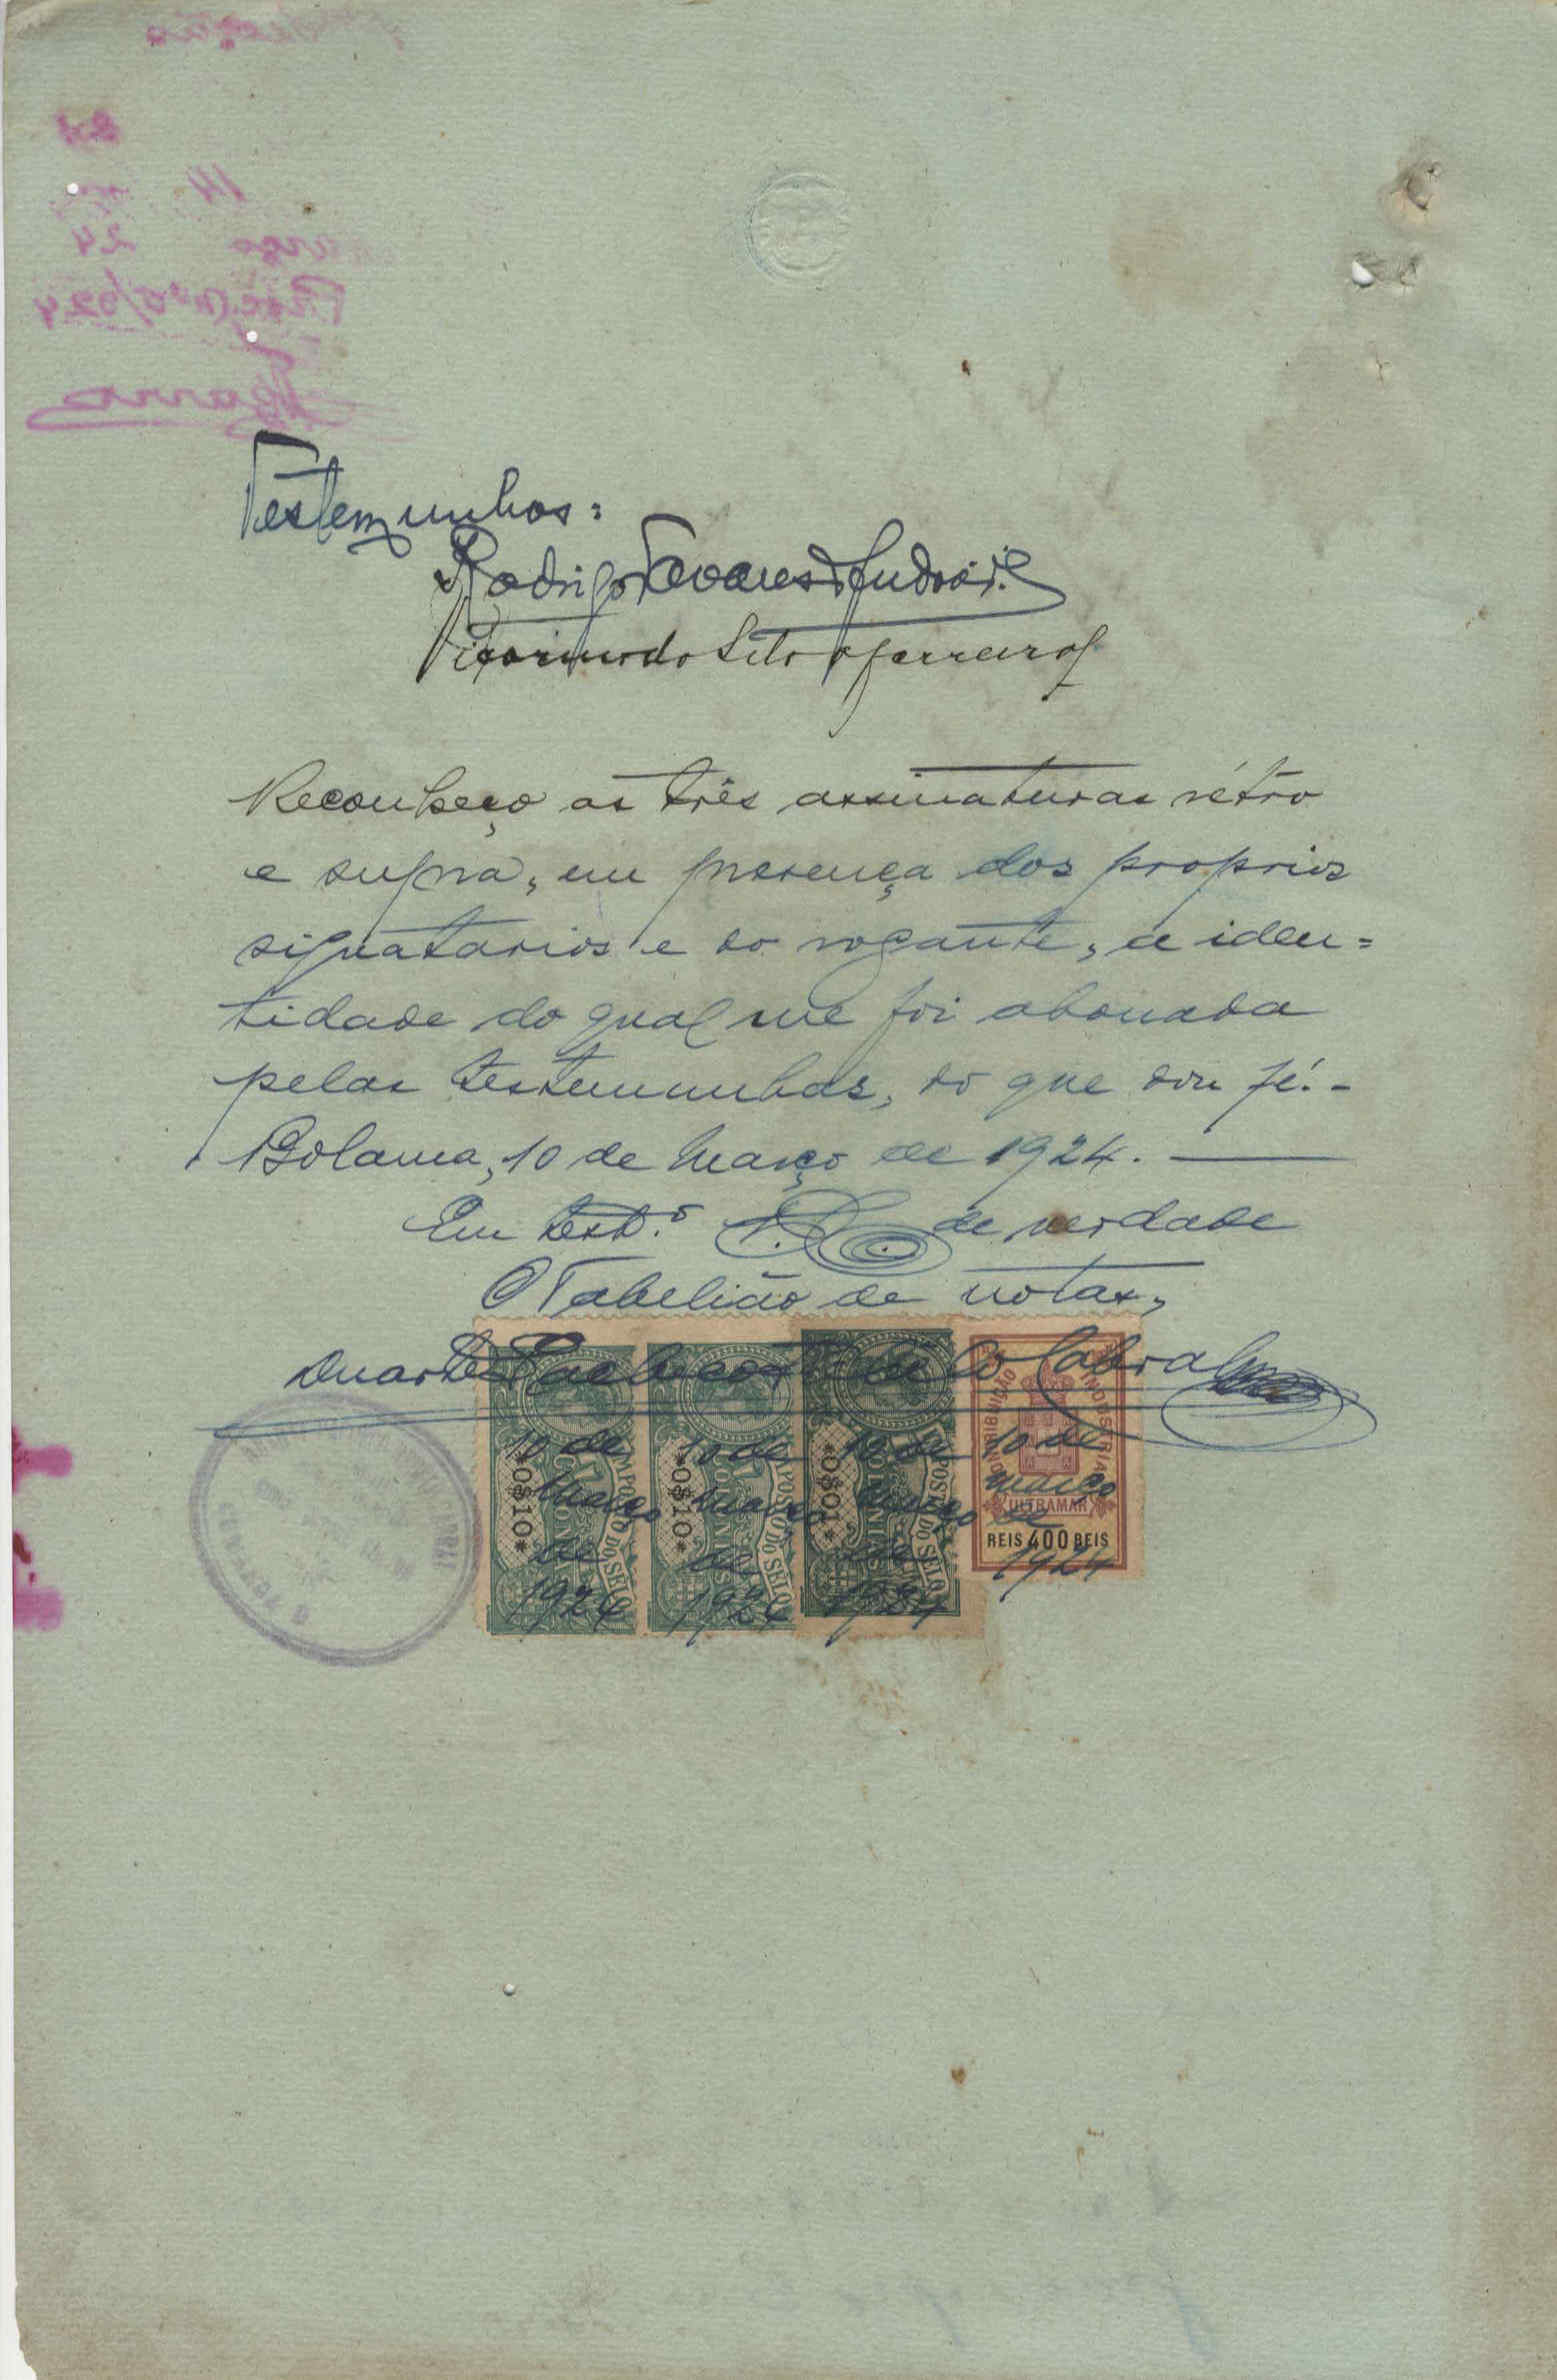 Testemunhas:
Rodrigo Tavares d'Andrade
Reconheço as três assinaturas rétro
e supra, em presença dos proprios
signatarios e do rogante, a iden=
tidade do qual me foi abonada
pelas testemunhas, do que dou fé.-
Bolama, 10 de Março de 1924.
Em test.º de verdade
O Tabelião de notas,
Duarte Pacheco Cabral
CONTRIBUIÇÃO INDUSTRIAL
10 de 10 de 10 de 10 de
Março Março Março Março
*0$10* *0$10* *0$10*
IMPOSTO DO SELO IMPOSTO DO SELO IMPOSTO DO SELO
COLONIAS COLONIAS COLONIAS
ULTRAMAR
de de de de
REIS 400 REIS
1924 1924 1924 1924